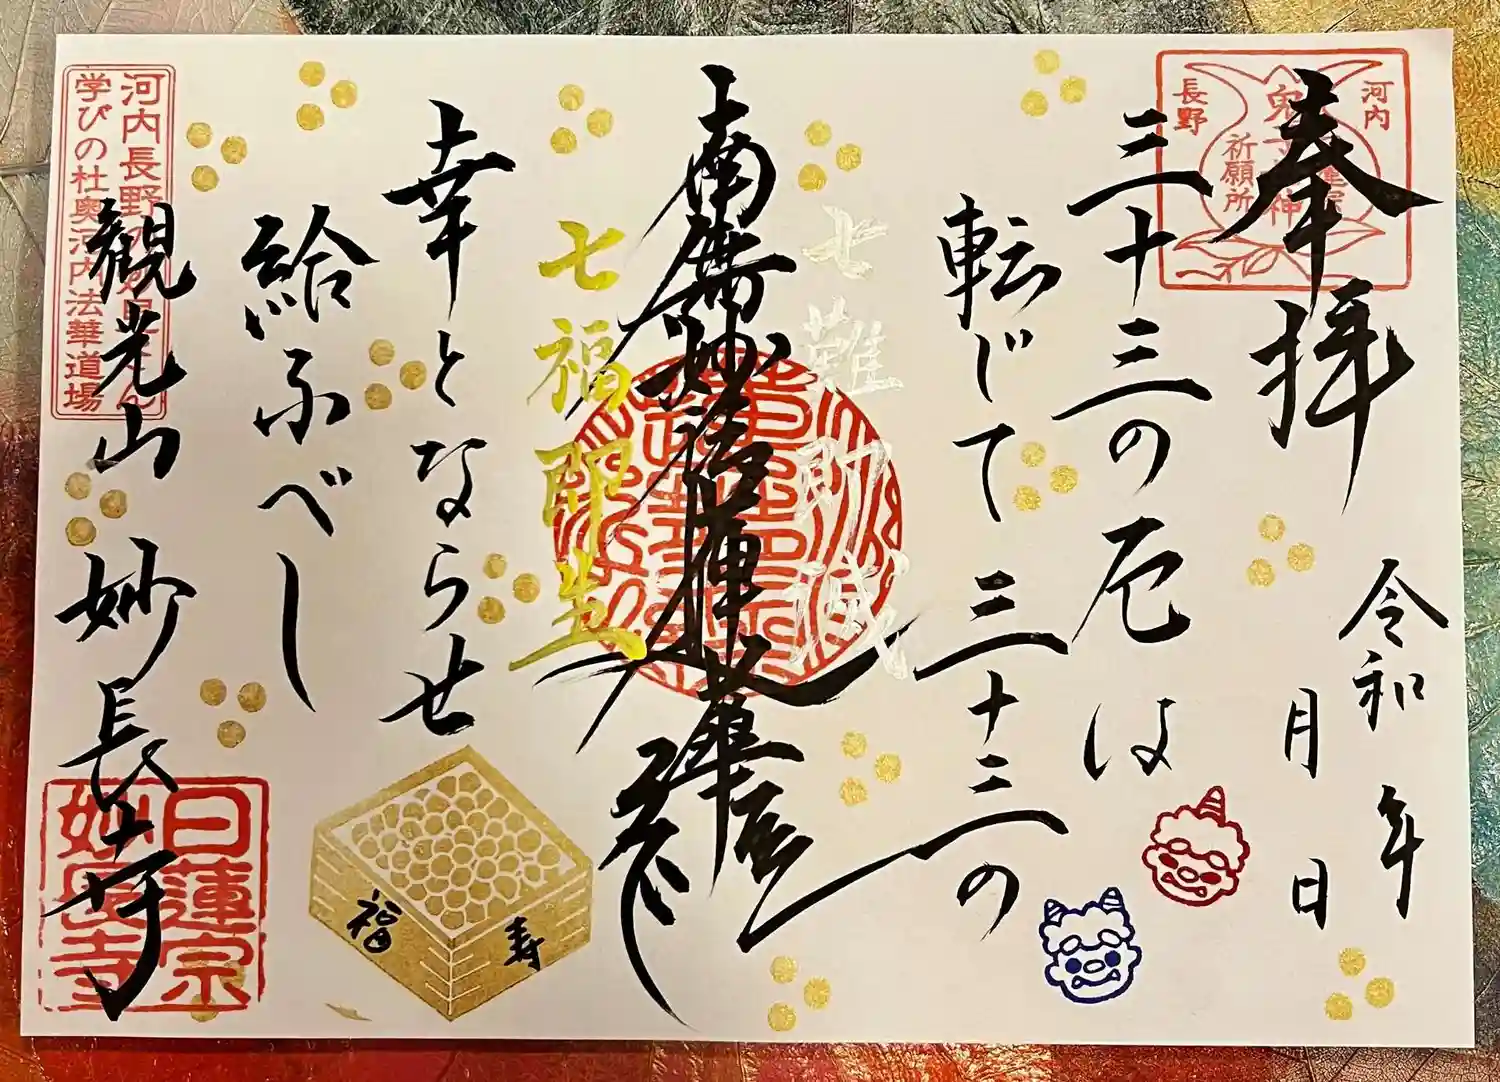 奉拝
河内
長野
祈願所
令和 年
月 日
三十三の厄は
転じて三十三の
七難即滅
南無妙法蓮華経
七福即生
幸とならせ
給ふべし
福
寿
観光山 妙長寺
河内長野の
学びの杜奥河内法華道場
日蓮宗
妙長寺